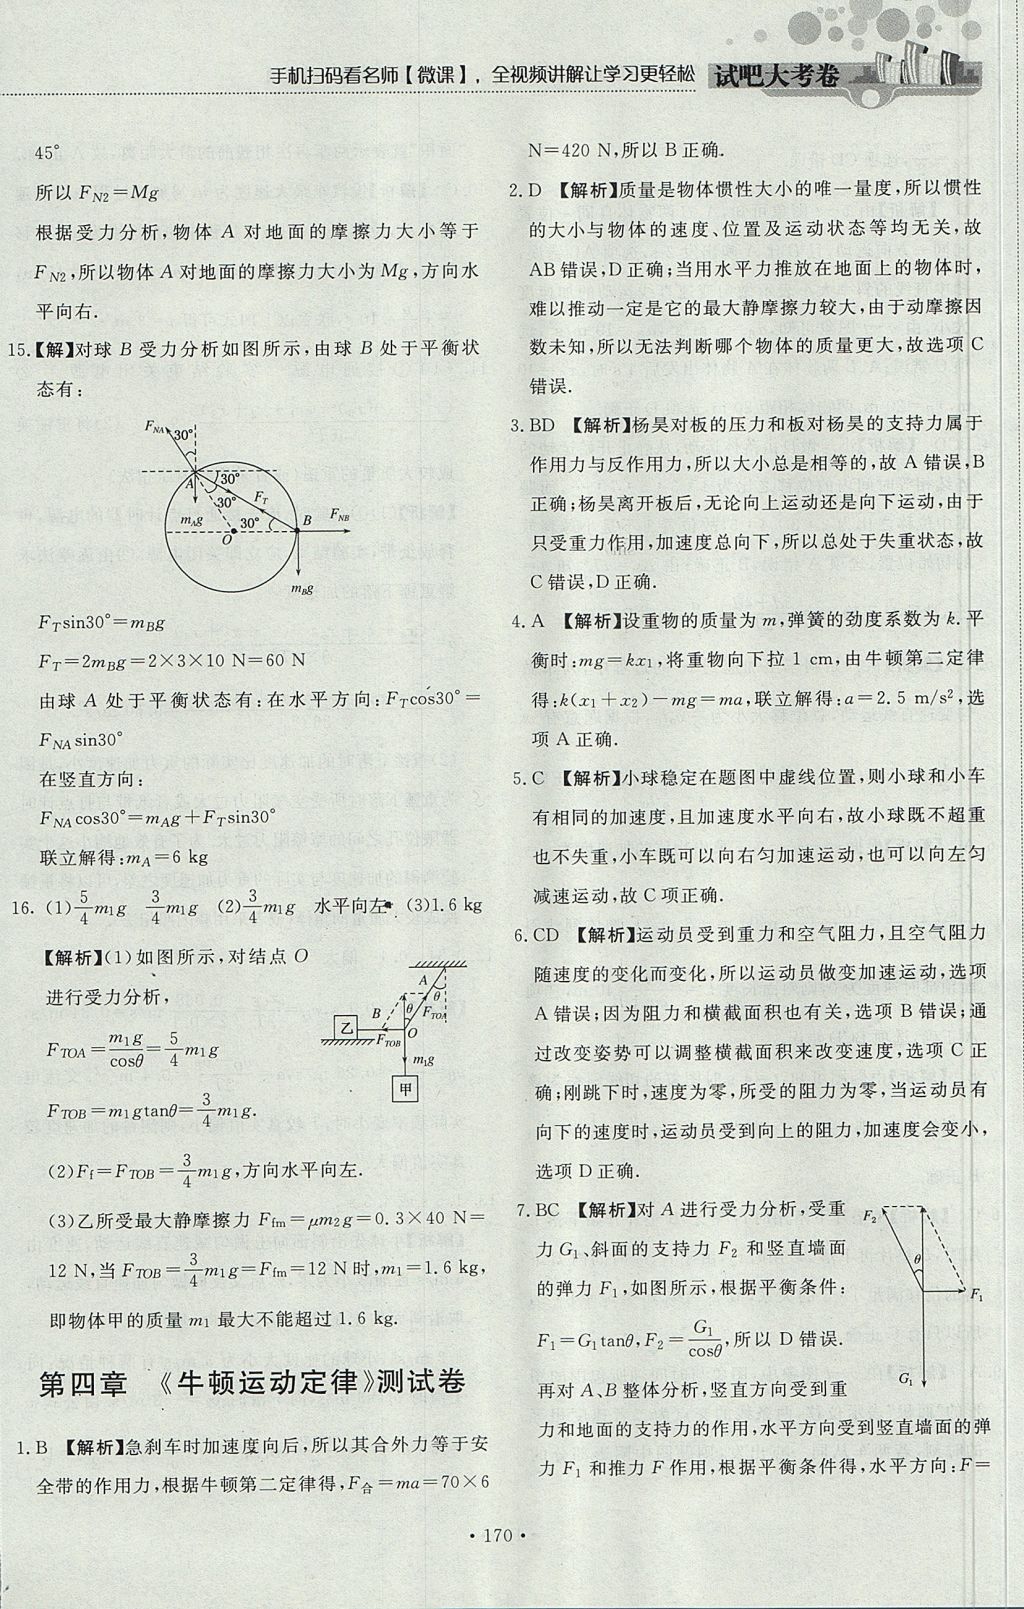 手机扫码看名师【微课】，全视频讲解让学习更轻松 试吧大考卷
45°
所以 FN2=Mg
根据受力分析,物体 A 对地面的摩擦力大小等于
FN2,所以物体 A 对地面的摩擦力大小为 Mg,方向水
平向右.
15.【解】对球 B 受力分析如图所示,由球 B 处于平衡状
态有:
FNA 30°
A 30°
FT
30°
mAg 30° B FNB
O
mBg
FTsin30°=mBg
FT=2mBg=2×3×10 N=60 N
由球 A 处于平衡状态有:在水平方向:FTcos30°=
FNAsin30°
在竖直方向:
FNAcos30°=mAg+FTsin30°
联立解得:mA=6 kg
16. (1)5/4m1g 3/4m1g (2)3/4m1g 水平向左 (3)1.6 kg
【解析】(1)如图所示,对结点 O
进行受力分析,
FTOA=m1g/cosθ=5/4m1g
FTOB=m1gtanθ=3/4m1g.
A θ
B θ FTOA
乙 FTOB O
m1g
甲
(2)Ff=FTOB=3/4m1g,方向水平向左.
(3)乙所受最大静摩擦力 Ffm=μm2g=0.3×40 N=
12 N,当 FTOB=3/4m1g=Ffm=12 N 时,m1=1.6 kg,
即物体甲的质量 m1 最大不能超过 1.6 kg.
第四章 《牛顿运动定律》测试卷
1. B 【解析】急刹车时加速度向后,所以其合外力等于安
全带的作用力,根据牛顿第二定律得,F合=ma=70×6
N=420 N,所以 B 正确.
2. D 【解析】质量是物体惯性大小的唯一量度,所以惯性
的大小与物体的速度、位置及运动状态等均无关,故
AB 错误,D 正确;当用水平力推放在地面上的物体时,
难以推动一定是它的最大静摩擦力较大,由于动摩擦因
数未知,所以无法判断哪个物体的质量更大,故选项 C
错误.
3. BD 【解析】杨昊对板的压力和板对杨昊的支持力属于
作用力与反作用力,所以大小总是相等的,故 A 错误,B
正确;杨昊离开板后,无论向上运动还是向下运动,由于
只受重力作用,加速度总向下,所以总处于失重状态,故
C 错误,D 正确.
4. A 【解析】设重物的质量为 m,弹簧的劲度系数为 k.平
衡时:mg=kx1,将重物向下拉 1 cm,由牛顿第二定律
得:k(x1+x2)-mg=ma,联立解得:a=2.5 m/s²,选
项 A 正确.
5. C 【解析】小球稳定在题图中虚线位置,则小球和小车
有相同的加速度,且加速度水平向右,故小球既不超重
也不失重,小车既可以向右匀加速运动,也可以向左匀
减速运动,故 C 项正确.
6. CD 【解析】运动员受到重力和空气阻力,且空气阻力
随速度的变化而变化,所以运动员做变加速运动,选项
A 错误;因为阻力和横截面积也有关,选项 B 错误;通
过改变姿势可以调整横截面积来改变速度,选项 C 正
确;刚跳下时,速度为零,所受的阻力为零,当运动员有
向下的速度时,运动员受到向上的阻力,加速度会变小,
选项 D 正确.
7. BC 【解析】对 A 进行受力分析,受重
力 G1、斜面的支持力 F2 和竖直墙面
的弹力 F1,如图所示,根据平衡条件:
F1=G1tanθ,F2=G1/cosθ,所以 D 错误.
再对 A、B 整体分析,竖直方向受到重
F2
θ
F1
G1
力和地面的支持力的作用,水平方向受到竖直墙面的弹
力 F1 和推力 F 作用,根据平衡条件得,水平方向:F=
· 170 ·